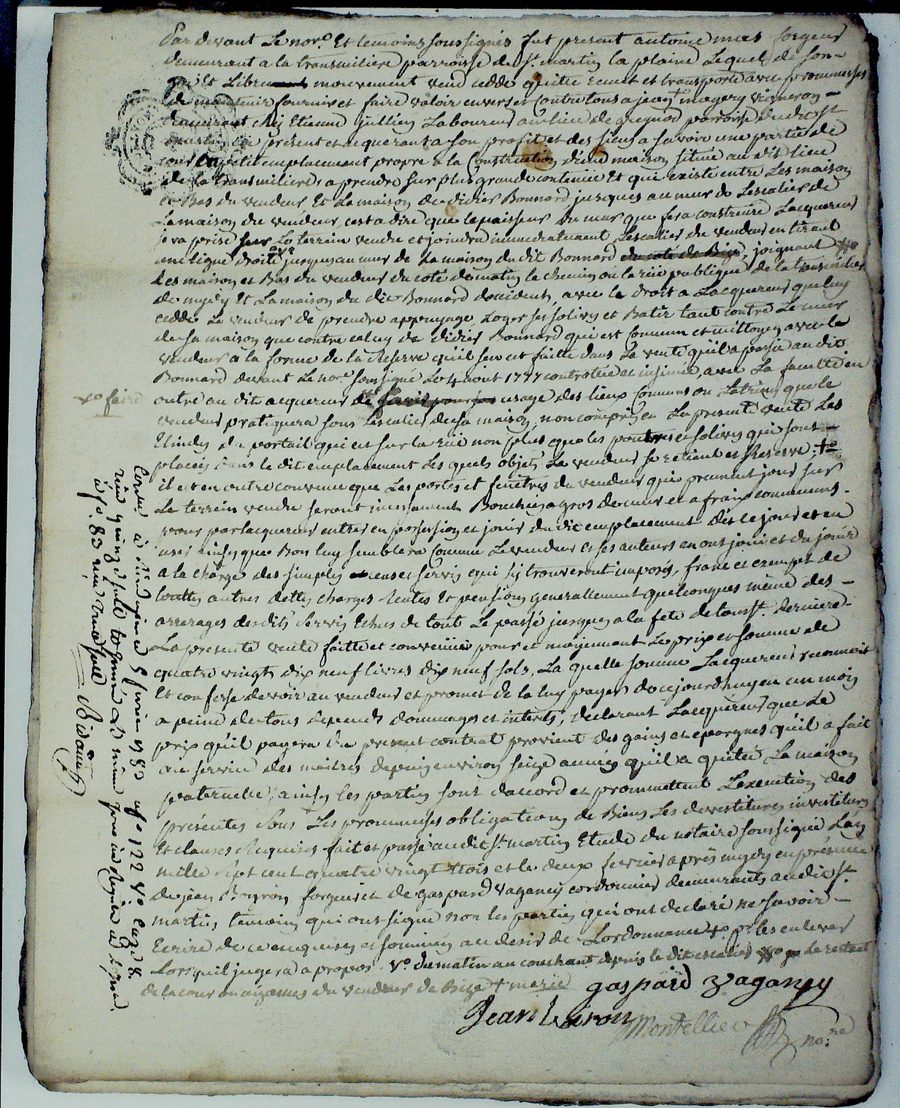 Par devant Le nore. Et temoins soussignés fut present antoine mas forgeur
demeurant a la transmiliere parroisse de st. martin la plaine Lequel de son
gré Et Libre mouvement vend cedde quitte remet et transporte avec promesses
de maintenir fournir et faire valoir envers et Contre tous a jean + magery vigneron
demeurant chez Etienne jullien Laboureur au lieu de parroisse dudit st
martin icy present et acquerant a son profit et des siens a savoir une partie de
cour en petit emplacement propre a la Construction d'une maison situé au dit lieu
de la transmiliere, a prendre sur plus grande contenue Et qui existe entre Les maison
et Bas du vendeur Et La maison de didier Bonnard jusques au mur de Lescalier de
La maison du vendeur cest a dire que lepaisseur du mur que fera construire Lacquereur
sera prise sur Le terrein vendu et joindra immediatement Lescalier du vendeur en tirant
une ligne droite jusques au mur de La maison du dit Bonnard du coté de Bize, joignant
Les maison et Bas du vendeur du coté de matin le chemin ou la rüe publique de la transmiliere
de midy Et La maison du dit Bonnard doccident, avec le droit a Lacquereur que luy
cedde Le vendeur de prendre appuyage Loger ses solives et Batir tant contre Le mur
de sa maison que contre celuy de Didier Bonnard qui est Commun et mittoyen avec le
vendeur a la forme de la Reserve quil sen est faitte dans La vente qu'il a passé au dit
Bonnard devant Le nore. soussigné Le 4 aout 1777 controllée et insinuée, avec La faculté en
outre au dit acquereur de faire usage des lieux communs ou Latrines que le
xo faire
vendeur pratiquera sous Lescalier de sa maison, non compris en La presente vente Les
du portail qui est sur la rüe non plus que les poutres et solives qui sont
placées dans le dit emplacement Les quels objets Le vendeur se retient et Reserve; +
il est en outre convenu que Les portes et fenetres du vendeur qui prennent jour sur
Le terrein vendu seront incessament Bouchées a gros de mur et a fraix communs.
pour par lacquereur entrer en possession et jouir du dit emplacement des ce jour et en
user ainsy que Bon luy semblera Comme Le vendeur et ses auteurs en ont joui et du jouir
a la charge des simples cense et servis qui s'y trouveront imposés, franc et exempt de
touttes autres dettes charges Rentes Et pensions generallement quelconques meme des
arrerages desdits servis Echus de tout Le passé jusques a la fete de touss. derniere
La presente vente faitte et convenüe pour et moyennant Le prix et somme de
quatre vingts dix neuf livres dix neuf sols, La quelle somme Lacquereur reconnoit
Et confesse devoir au vendeur et promet de la luy payer daujourdhuy en un mois
a peine de tous depends dommages et interets, declarant Lacquereur que Le
prix qu'il payera du present contrat provient des gains et epargnes qu'il a fait
au service des maitres depuis environ seize années qu'il a quitté La maison
paternelle; ainsy les parties sont daccord et promettent Lexecution des
presentes Sous Les promesses obligations de Biens Les devestitures investitures
Et clauses Requises fait et passé au dit st. martin Etude du notaire soussigné Lan
mille sept cent quatre vingt trois et le deux fevrier après midy en presence
de jean forgeur et de Gaspard vaganey cordonnier demeurants au dit st.
martin temoins qui ont signé non les parties qui ont declaré ne savoir
Ecrire de ce enquises et sommées au desir de Lordonnance + pr les enlever
Lorsqu'il jugera a propos. Vo. du matin au couchant depuis le dit escalier xo Le restant
de la cour ou aizemes du vendeur de Bize + marie
gaspard vaganey
Jean
Montellier
nore